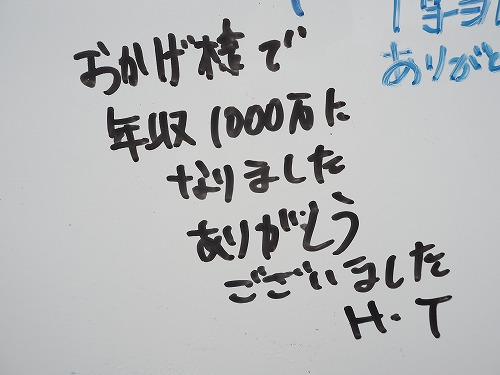 おかげ様で
年収1000万に
なりました
ありがとう
ございました
H・T
ありがと